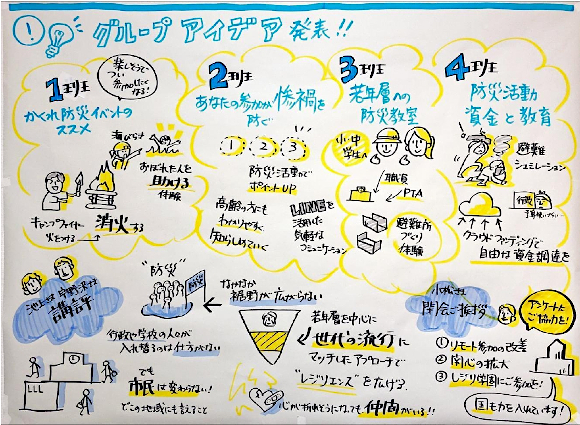 グループアイデア発表!!
1班
楽しそうで
つい
参加したく
なる!
かくれ防災イベントの
ススメ
海びらき
おぼれた人を
助ける
体験
キャンプファイヤー
火をつける
消火する
2班
あなたの参加が惨禍を
防ぐ
1
2
3
防災活動で
ポイントUP
高齢の方にも
わかりやすく
知らしめていく
LINEを
活用した
気軽な
コミュニケーション
3班
若年層への
防災教室
小・中
学生
職員
PTA
避難所
づくり
体験
4班
防災活動
資金と教育
避難
シュミレーション
行政
クラウドファンディングで
自由な資金調達を
講評
"防災"
防災
なかなか
裾野が広がらない
行政や学校の人々が
入れ替るのは仕方がない
でも
市民は変わらない!
どこの地域にも言えること
若年層を中心に
世代の流行に
マッチしたアプローチで
"レジリエンス"を広げる
心が折れそうになっても仲間がいる!!
閉会ご挨拶
アンケートに
ご協力を!
①リモート参加の改善
②関心の拡大
③レジリ学園にご参加を!
国も力を入れています!